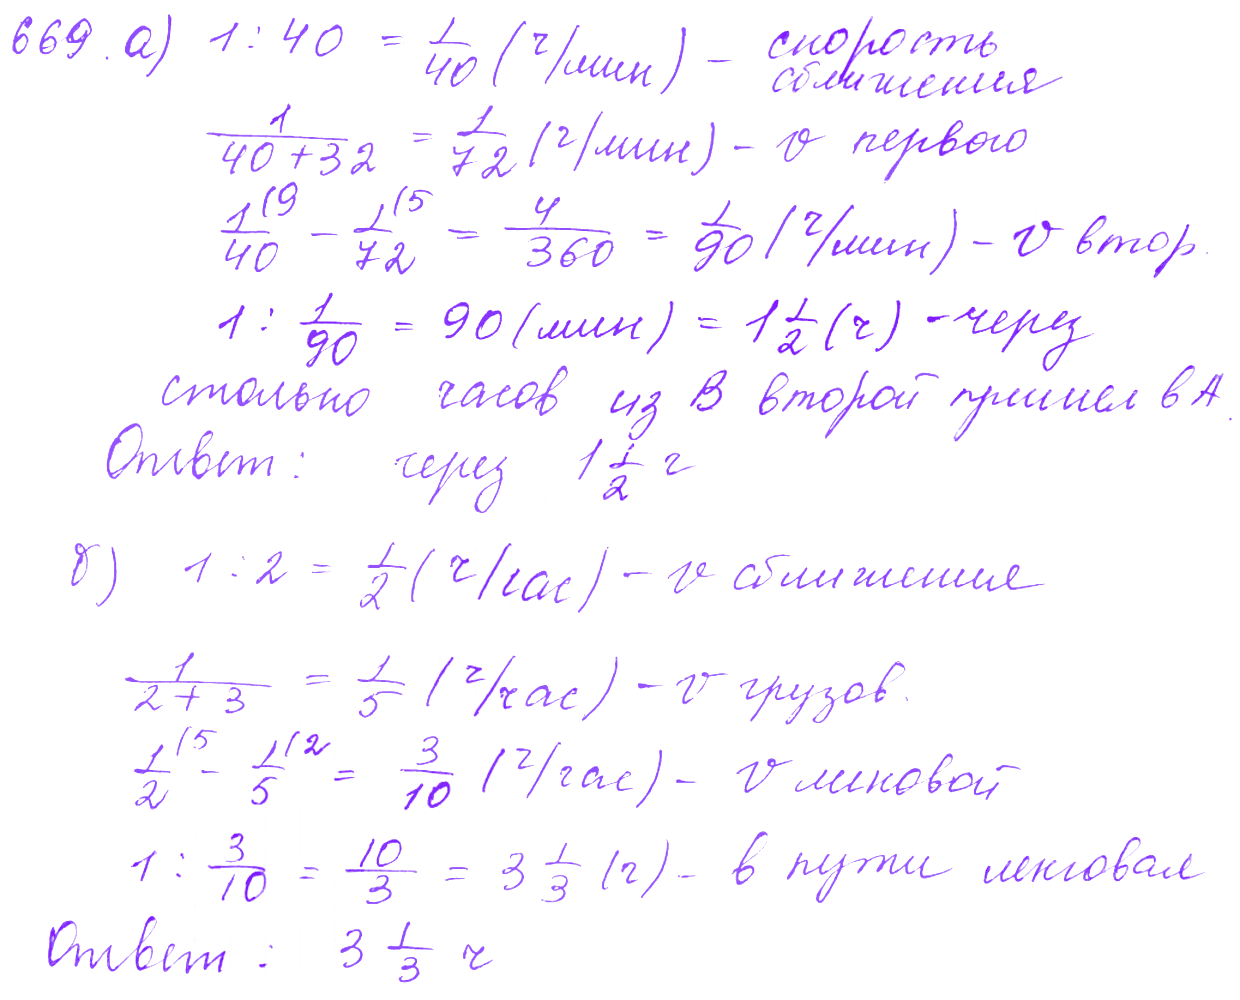 669. а) 1 : 40 = 1/40 (ч/мин) – скорость сближения
1/(40 + 32) = 1/72 (ч/мин) – v первого
1/40 (9 – 1/72 (5 = 4/360 = 1/90 (ч/мин) – v втор.
1 : 1/90 = 90 (мин) = 1 1/2 (ч) – через
столько часов из В второй пришел в А.
Ответ: через 1 1/2 ч
б) 1 : 2 = 1/2 (ч/час) – v сближения
1/(2 + 3) = 1/5 (ч/час) – v грузов.
1/2 (5 – 1/5 (2 = 3/10 (ч/час) – v легковой
1 : 3/10 = 10/3 = 3 1/3 (ч) – в пути легковая
Ответ: 3 1/3 ч